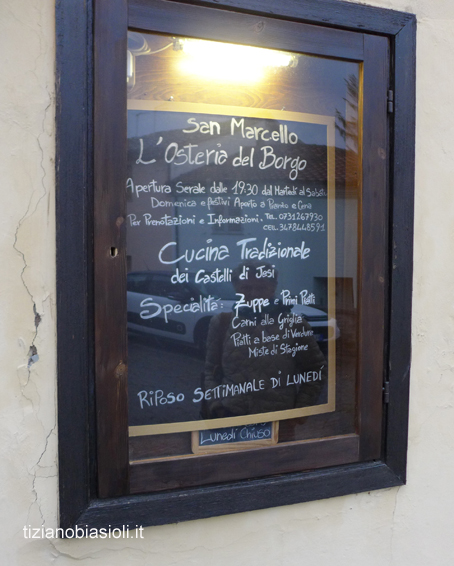 San Marcello
L'Osteria del Borgo
Apertura Serale dalle 19:30 dal Martedì al Sabato
Domenica e festivi Aperto a Pranzo e Cena
Per Prenotazioni e Informazioni. Tel. 0731267930
cell. 3478448591
Cucina Tradizionale
dei Castelli di Jesi
Specialità: Zuppe e Primi Piatti
Carni alla Griglia
Piatti a base di Verdure
Miste di Stagione
Riposo SETTIMANALE DI LUNEDÍ
Lunedì Chiuso
tizianobiasioli.it